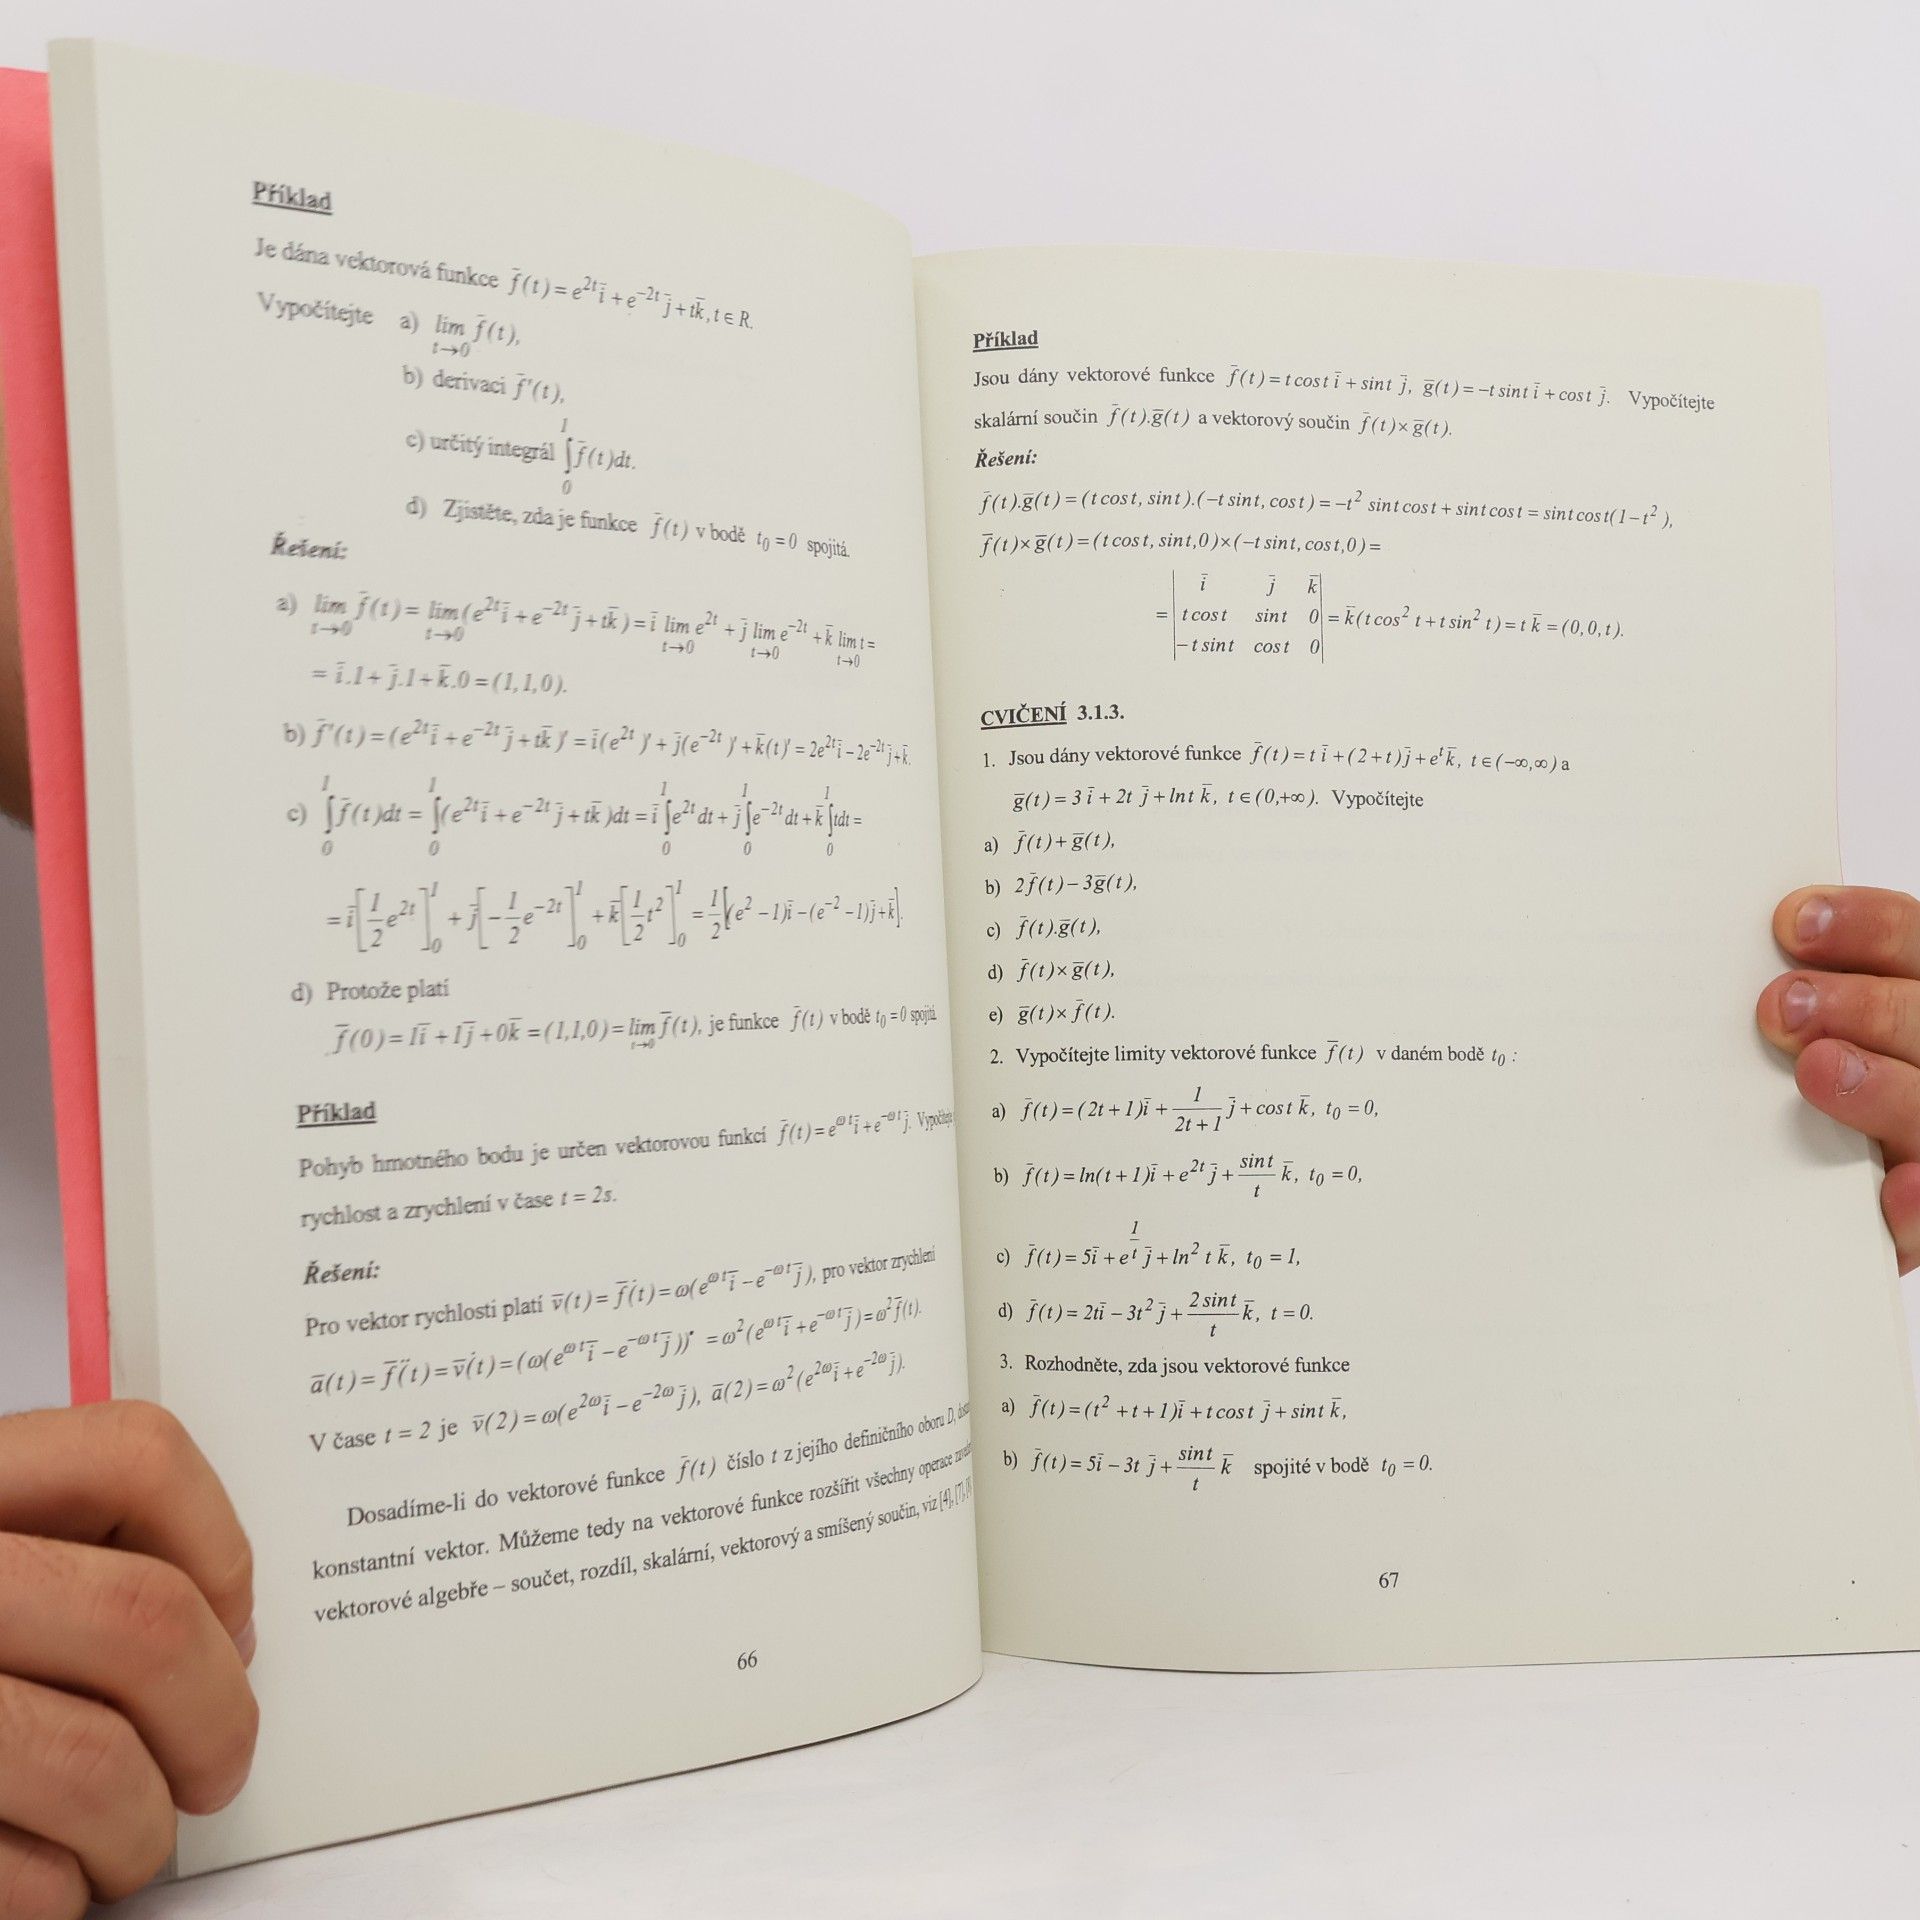 Příklad
Je dána vektorová funkce f̄(t)=e^{2t}ī+e^{-2t}j̄+tk̄, t∈R.
Vypočítejte a) lim_{t→0} f̄(t),
b) derivaci f̄'(t),
c) určitý integrál ∫_0^1 f̄(t)dt.
d) Zjistěte, zda je funkce f̄(t) v bodě t_0=0 spojitá.
Řešení:
a) lim_{t→0} f̄(t)= lim_{t→0} (e^{2t}ī+e^{-2t}j̄+tk̄)=ī lim_{t→0} e^{2t}+j̄ lim_{t→0} e^{-2t}+k̄ lim_{t→0} t=
= ī.1+j̄.1+k̄.0=(1,1,0).
b) f̄'(t)=(e^{2t}ī+e^{-2t}j̄+tk̄)'=ī(e^{2t})'+j̄(e^{-2t})'+k̄(t)'=2e^{2t}ī-2e^{-2t}j̄+k̄.
c) ∫_0^1 f̄(t)dt = ∫_0^1 (e^{2t}ī+e^{-2t}j̄+tk̄)dt = ī∫_0^1 e^{2t}dt+j̄∫_0^1 e^{-2t}dt+k̄∫_0^1 tdt =
= ī[1/2 e^{2t}]_0^1 + j̄[-1/2 e^{-2t}]_0^1 + k̄[1/2 t^2]_0^1 = 1/2[(e^2-1)ī-(e^{-2}-1)j̄+k̄].
d) Protože platí
f̄(0)=1ī+1j̄+0k̄=(1,1,0)= lim_{t→0} f̄(t), je funkce f̄(t) v bodě t_0=0 spojitá.
Příklad
Pohyb hmotného bodu je určen vektorovou funkcí f̄(t)=e^{ωt}ī+e^{-ωt}j̄. Vypočítejte
rychlost a zrychlení v čase t = 2s.
Řešení:
Pro vektor rychlosti platí v̄(t)=f̄˙(t)=ω(e^{ωt}ī-e^{-ωt}j̄), pro vektor zrychlení
ā(t)=f̄¨(t)=v̄˙(t)=(ω(e^{ωt}ī-e^{-ωt}j̄))˙ =ω^2(e^{ωt}ī+e^{-ωt}j̄)=ω^2f̄(t).
V čase t = 2 je v̄(2)=ω(e^{2ω}ī-e^{-2ω}j̄), ā(2)=ω^2(e^{2ω}ī+e^{-2ω}j̄).
Dosadíme-li do vektorové funkce f̄(t) číslo t z jejího definičního oboru D,
konstantní vektor. Můžeme tedy na vektorové funkce rozšířit všechny operace
vektorové algebře – součet, rozdíl, skalární, vektorový a smíšený součin, viz [4], [7],
66
Příklad
Jsou dány vektorové funkce f̄(t)=t cost ī+sint j̄, ḡ(t)=-t sint ī+cost j̄. Vypočítejte
skalární součin f̄(t).ḡ(t) a vektorový součin f̄(t)×ḡ(t).
Řešení:
f̄(t).ḡ(t)=(t cost, sint).(-t sint, cost)=-t^2 sint cost+sint cost=sint cost(1-t^2),
f̄(t)×ḡ(t)=(t cost, sint,0)×(-t sint, cost,0)=
| ī j̄ k̄ |
= | t cost sint 0 | = k̄(t cos^2 t+t sin^2 t)=t k̄=(0,0,t).
| -t sint cost 0 |
CVIČENÍ 3.1.3.
1. Jsou dány vektorové funkce f̄(t)=t ī+(2+t)j̄+e^t k̄, t∈(-∞,∞) a
ḡ(t)=3 ī+2t j̄+lnt k̄, t∈(0,+∞). Vypočítejte
a) f̄(t)+ḡ(t),
b) 2f̄(t)-3ḡ(t),
c) f̄(t).ḡ(t),
d) f̄(t)×ḡ(t),
e) ḡ(t)×f̄(t).
2. Vypočítejte limity vektorové funkce f̄(t) v daném bodě t_0 :
a) f̄(t)=(2t+1)ī+ 1/(2t+1) j̄+cost k̄, t_0=0,
b) f̄(t)=ln(t+1)ī+e^{2t}j̄+ sint/t k̄, t_0=0,
c) f̄(t)=5ī+e^{1/t}j̄+ln^2 t k̄, t_0=1,
d) f̄(t)=2tī-3t^2j̄+ 2sint/t k̄, t=0.
3. Rozhodněte, zda jsou vektorové funkce
a) f̄(t)=(t^2+t+1)ī+t cost j̄+sint k̄,
b) f̄(t)=5ī-3t j̄+ sint/t k̄ spojité v bodě t_0=0.
67